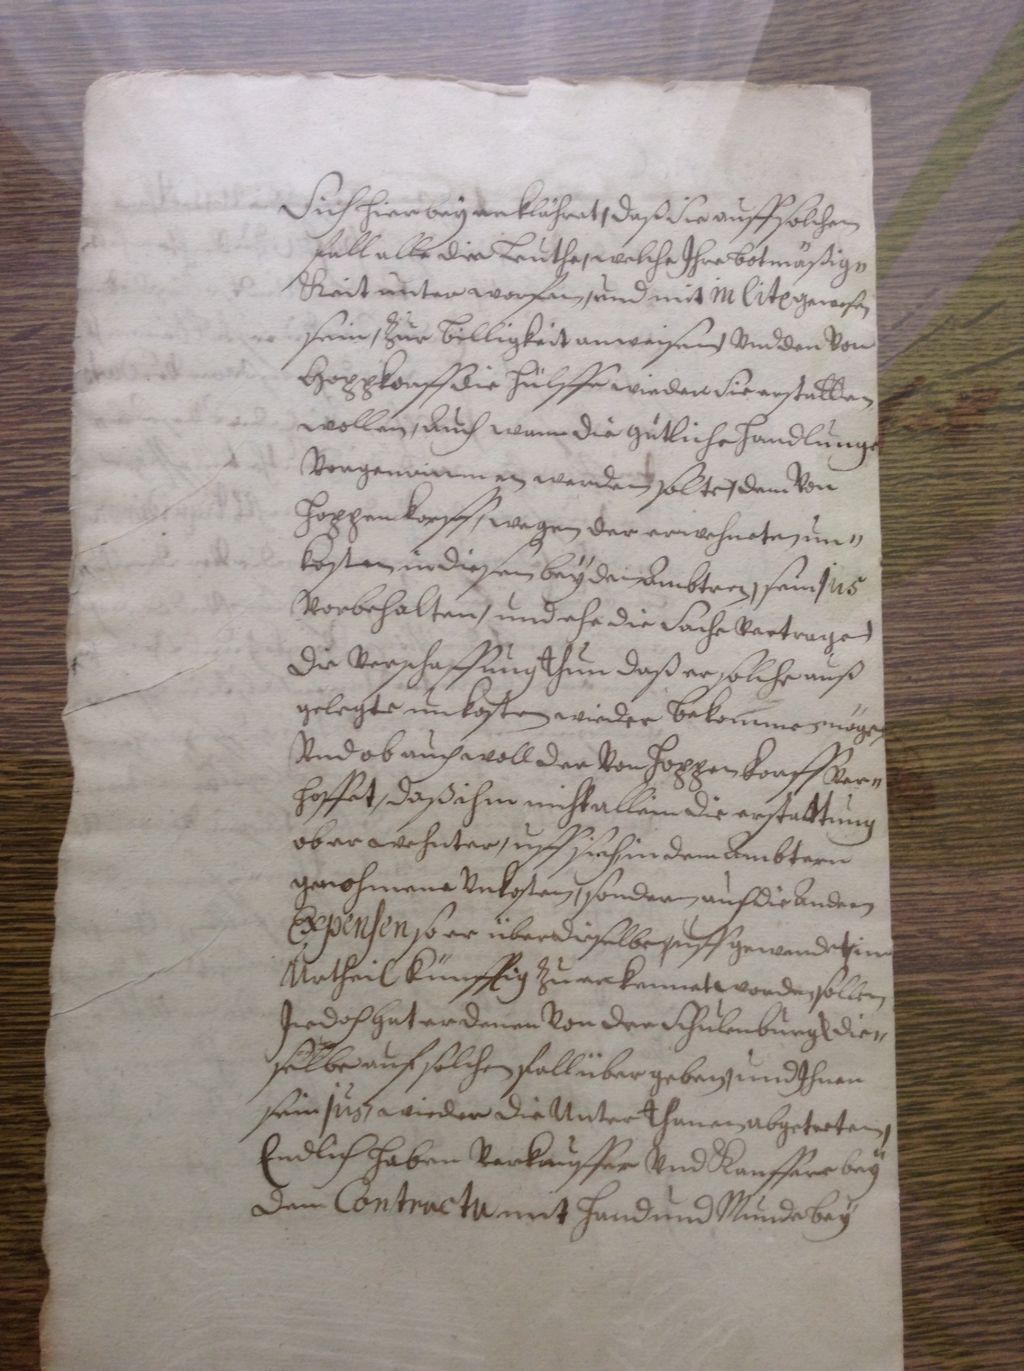 Sich hierbey erklähret, daß Sie auff solchen
fall alle die Leuthe, welche Ihrer botmäßig-
keit unterworffen, und mit in lite gewesen
sein, zur billigkeit anweisen, Und den Von
Hoppkorff die hülffe wieder Sie erstatten
wollen, Auch wann die gütliche handlunge
Vorgenommen werden solte, dem Von
Hoppenkorff, wegen der erwehneten un-
kosten in diesen beyden Ambtern, sein jus
Vorbehalten, und ehe die Sache Vertragen
die Verschaffung thun daß er solche auß
gelegte unkosten wieder bekommen möge,
Und ob auch woll der Von Hoppenkorff Ver-
hoffet, daß ihm nicht allein die erstattung
oberwehnter, uff sich in dem Ambtern
genohmene Unkosten, sondern auch die andern
Expensen so er über dieselbe uffgewendet, im
Urtheil künfftig zuerkennet werden sollen
Jedoch hat er denen Von der Schulenburg die-
selbe auf solchen fall übergeben, und Ihnen
sein jus, wieder die Unterthanen abgetreten,
Endlich haben Verkäuffer Und Kauffere bey
dem Contractu mit hand und Munde bey